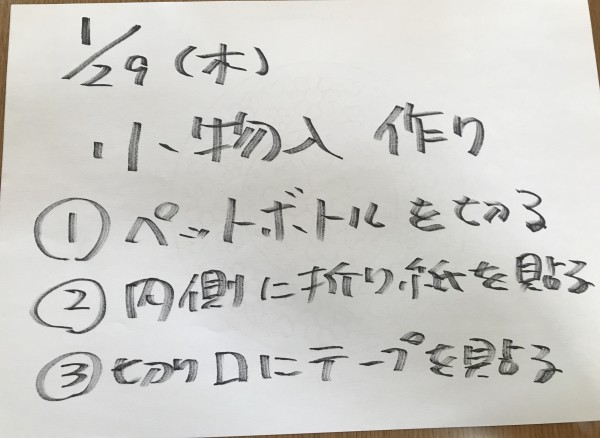 1/29(木)
小物入 作り
① ペットボトルを切る
② 内側に折り紙を貼る
③ 切り口にテープを貼る